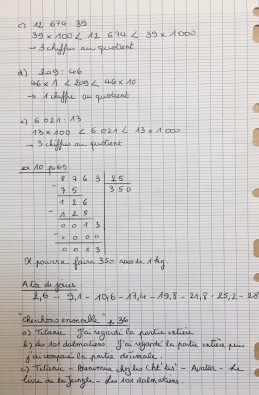 c) 12 674 : 39
39 x 100 < 12 674 < 39 x 1 000
→ 3 chiffres au quotient
d) 209 : 46
46 x 1 < 209 < 46 x 10
→ 1 chiffre au quotient
e) 6 021 : 13
13 x 100 < 6 021 < 13 x 1000
→ 3 chiffres au quotient
ex 10 p 65
8 7 6 3 | 25
- 7 5 | 3 5 0
1 2 6
- 1 2 5
0 0 1 3
- 0 0 0 0
0 0 1 3
Il pourra faire 350 sacs de 1 kg.
A la de jours
2,6 - 9,1 - 10,6 - 17,4 - 19,8 - 21,8 - 25,2 - 28
"Cherchons ensemble" p 36
a) Titanic J'ai regardé la partie entière
b) Les 101 dalmations. J'ai regardé la partie entière puis
j'ai comparé la partie décimale.
c) Titanic - Bienvenue chez les Ch'tis - Avatar - Le
livre de la jungle - Les 101 dalmations.